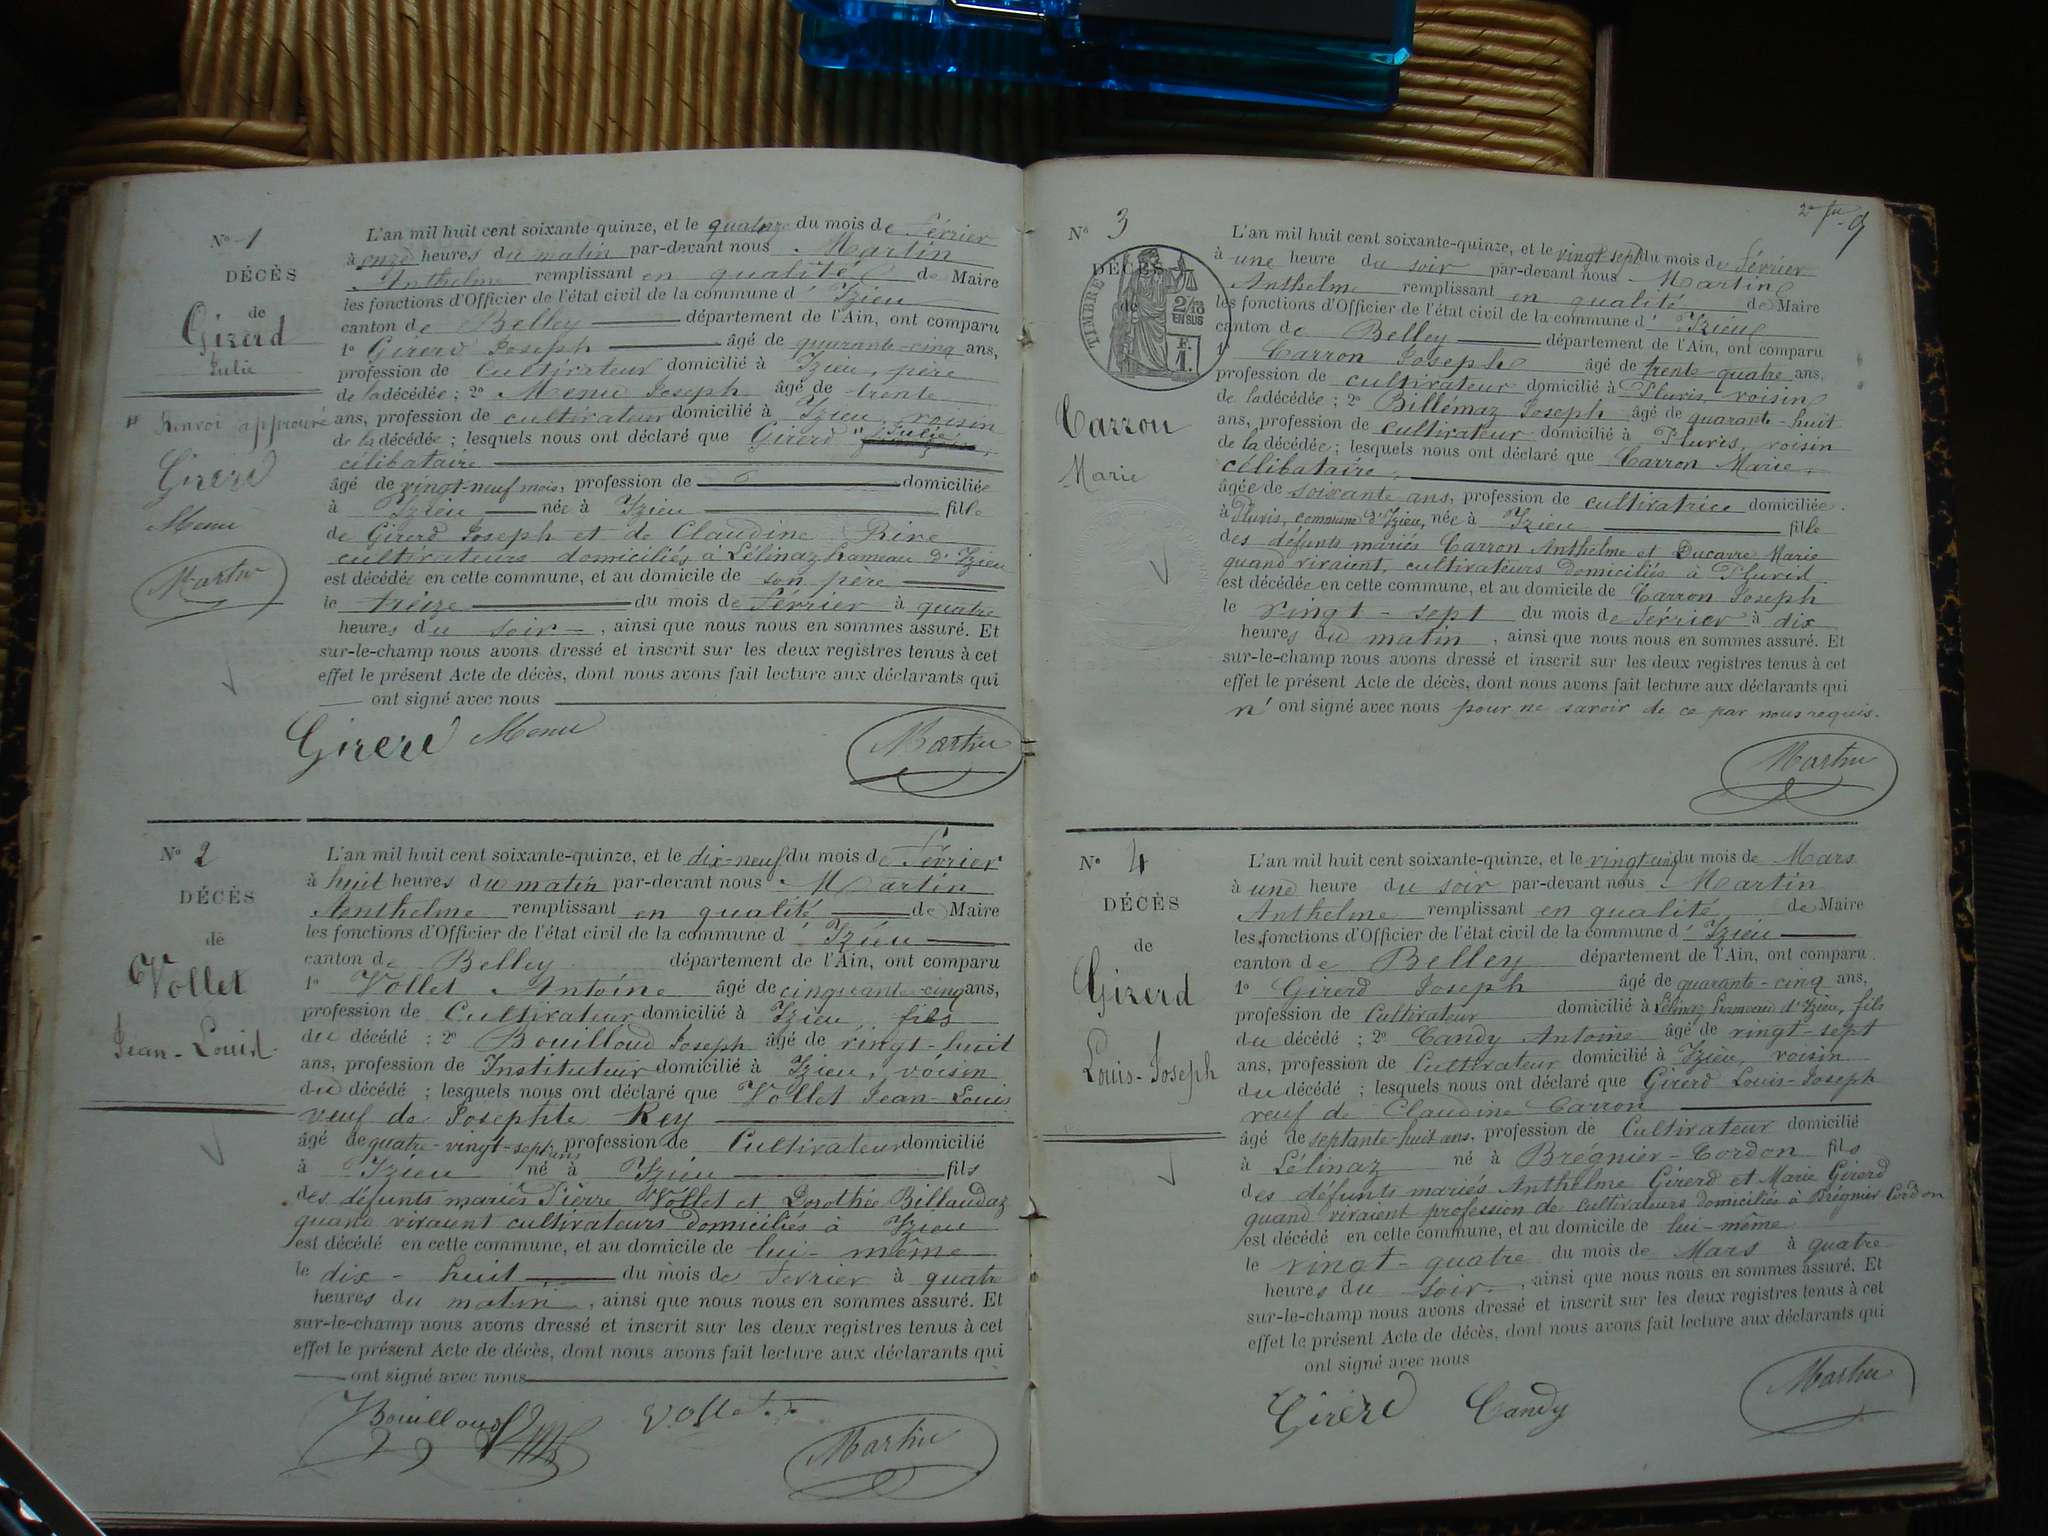 N° 1
DÉCÈS
de
Girerd
Julie
Renvoi approuvé
Girerd
Menu
Martin
L'an mil huit cent soixante-quinze, et le quatorze du mois de Février
à onze heures du matin par-devant nous Martin
Anthelme remplissant en qualité de Maire
les fonctions d'Officier de l'état civil de la commune d' Izieu
canton de Belley département de l'Ain, ont comparu
1° Girerd Joseph âgé de quarante-cinq ans,
profession de Cultivateur domicilié à Izieu, père
de la décédée ; 2° Menu Joseph âgé de trente
ans, profession de cultivateur domicilié à Izieu, voisin
de la décédée ; lesquels nous ont déclaré que Girerd " Julie
célibataire
âgé de vingt-neuf mois, profession de domiciliée
à Izieu née à Izieu fille
de Girerd Joseph et de Claudine Rive
cultivateurs domiciliés à Lélinaz hameau d'Izieu
est décédée en cette commune, et au domicile de son père
le treize du mois de Février à quatre
heures du soir , ainsi que nous nous en sommes assuré. Et
sur-le-champ nous avons dressé et inscrit sur les deux registres tenus à cet
effet le présent Acte de décès, dont nous avons fait lecture aux déclarants qui
ont signé avec nous
Girerd Menu Martin
N° 2
DÉCÈS
de
Vollet
Jean-Louis
L'an mil huit cent soixante-quinze, et le dix-neuf du mois de Février
à huit heures du matin par-devant nous Martin
Anthelme remplissant en qualité de Maire
les fonctions d'Officier de l'état civil de la commune d' Izieu
canton de Belley département de l'Ain, ont comparu
1° Vollet Antoine âgé de cinquante-cinq ans,
profession de Cultivateur domicilié à Izieu, fils
du décédé ; 2° Bouilloud Joseph âgé de vingt-huit
ans, profession de Instituteur domicilié à Izieu, voisin
du décédé ; lesquels nous ont déclaré que Vollet Jean-Louis
veuf de Josephte Rey
âgé de quatre-vingt-sept ans profession de Cultivateur domicilié
à Izieu né à Izieu fils
des défunts mariés Pierre Vollet et Dorothée Billaudaz
quand vivaient cultivateurs domiciliés à Izieu
est décédé en cette commune, et au domicile de lui-même
le dix-huit du mois de Fevrier à quatre
heures du matin , ainsi que nous nous en sommes assuré. Et
sur-le-champ nous avons dressé et inscrit sur les deux registres tenus à cet
effet le présent Acte de décès, dont nous avons fait lecture aux déclarants qui
ont signé avec nous
Bouilloud Vollet Martin
N° 3
DÉCÈS
de
TIMBRE
2/10
EN SUS
F.
1.
Carron
Marie
L'an mil huit cent soixante-quinze, et le vingt-sept du mois de Février
à une heure du soir par-devant nous Martin
Anthelme remplissant en qualité de Maire
les fonctions d'Officier de l'état civil de la commune d' Izieu
canton de Belley département de l'Ain, ont comparu
1° Carron Joseph âgé de trente-quatre ans,
profession de cultivateur domicilié à Pluvis, voisin
de la décédée ; 2° Billémaz Joseph âgé de quarante-huit
ans, profession de cultivateur domicilié à Pluvis, voisin
de la décédée ; lesquels nous ont déclaré que Carron Marie,
célibataire,
âgée de soixante ans, profession de cultivatrice domiciliée
à Pluvis, commune d'Izieu, née à Izieu fille
des défunts mariés Carron Anthelme et Ducarre Marie
quand vivaient, cultivateurs domiciliés à Pluvis
est décédée en cette commune, et au domicile de Carron Joseph
le vingt-sept du mois de Février à dix
heures du matin , ainsi que nous nous en sommes assuré. Et
sur-le-champ nous avons dressé et inscrit sur les deux registres tenus à cet
effet le présent Acte de décès, dont nous avons fait lecture aux déclarants qui
n' ont signé avec nous pour ne savoir de ce par nous requis.
Martin
N° 4
DÉCÈS
de
Girerd
Louis-Joseph
L'an mil huit cent soixante-quinze, et le vingt cinq du mois de Mars
à une heure du soir par-devant nous Martin
Anthelme remplissant en qualité de Maire
les fonctions d'Officier de l'état civil de la commune d' Izieu
canton de Belley département de l'Ain, ont comparu
1° Girerd Joseph âgé de quarante-cinq ans,
profession de Cultivateur domicilié à Lélinaz hameau d'Izieu, fils
du décédé ; 2° Candy Antoine âgé de vingt-sept
ans, profession de Cultivateur domicilié à Izieu, voisin
du décédé ; lesquels nous ont déclaré que Girerd Louis-Joseph
veuf de Claudine Carron
âgé de septante-huit ans, profession de Cultivateur domicilié
à Lélinaz né à Brégnier-Cordon fils
des défunts mariés Anthelme Girerd et Marie Girerd
quand vivaient profession de cultivateurs domiciliés à Brégnier Cordon
est décédé en cette commune, et au domicile de lui-même
le vingt-quatre du mois de Mars à quatre
heures du soir , ainsi que nous nous en sommes assuré. Et
sur-le-champ nous avons dressé et inscrit sur les deux registres tenus à cet
effet le présent Acte de décès, dont nous avons fait lecture aux déclarants qui
ont signé avec nous
Girerd Candy Martin